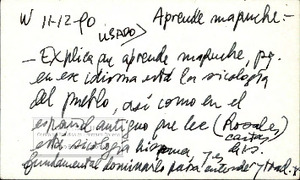 W 11-12-90 Aprende mapuche:-
USADO>
- Explica que aprende mapuche, pq.
en ese idioma está la sicología
del pueblo, así como en el
español antiguo que lee (Rosales,
cartas
está sicología hispana, y es
fundamental dominarlo para entender y trad.